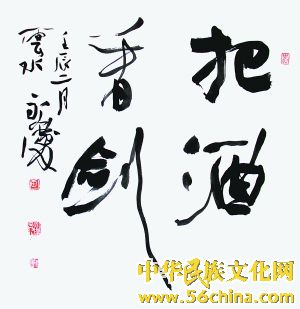 把酒
看剑
壬辰二月
雲水
中华民族文化网
www.56china.com